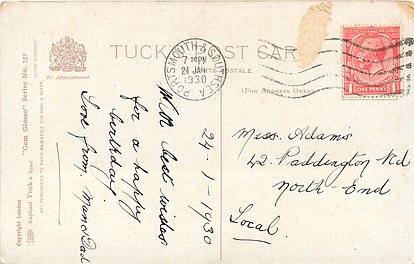 TUCK'S POST CARD
CARTE POSTALE.
(FOR ADDRESS ONLY)
By Appointment
"Gem Glosso" Series No.
Copyright London
Raphael Tuck & Sons
ART PUBLISHERS TO THEIR MAJESTIES THE KING & QUEEN
PORTSMOUTH & SOUTHSEA
7 30PM
24 JAN
1930
1 ONE PENNY 1
24-1-1930
With best wishes
for a happy
birthday
Love from Mum & Dad
Miss. Adams
42. Paddington Rd
North-End
Local.